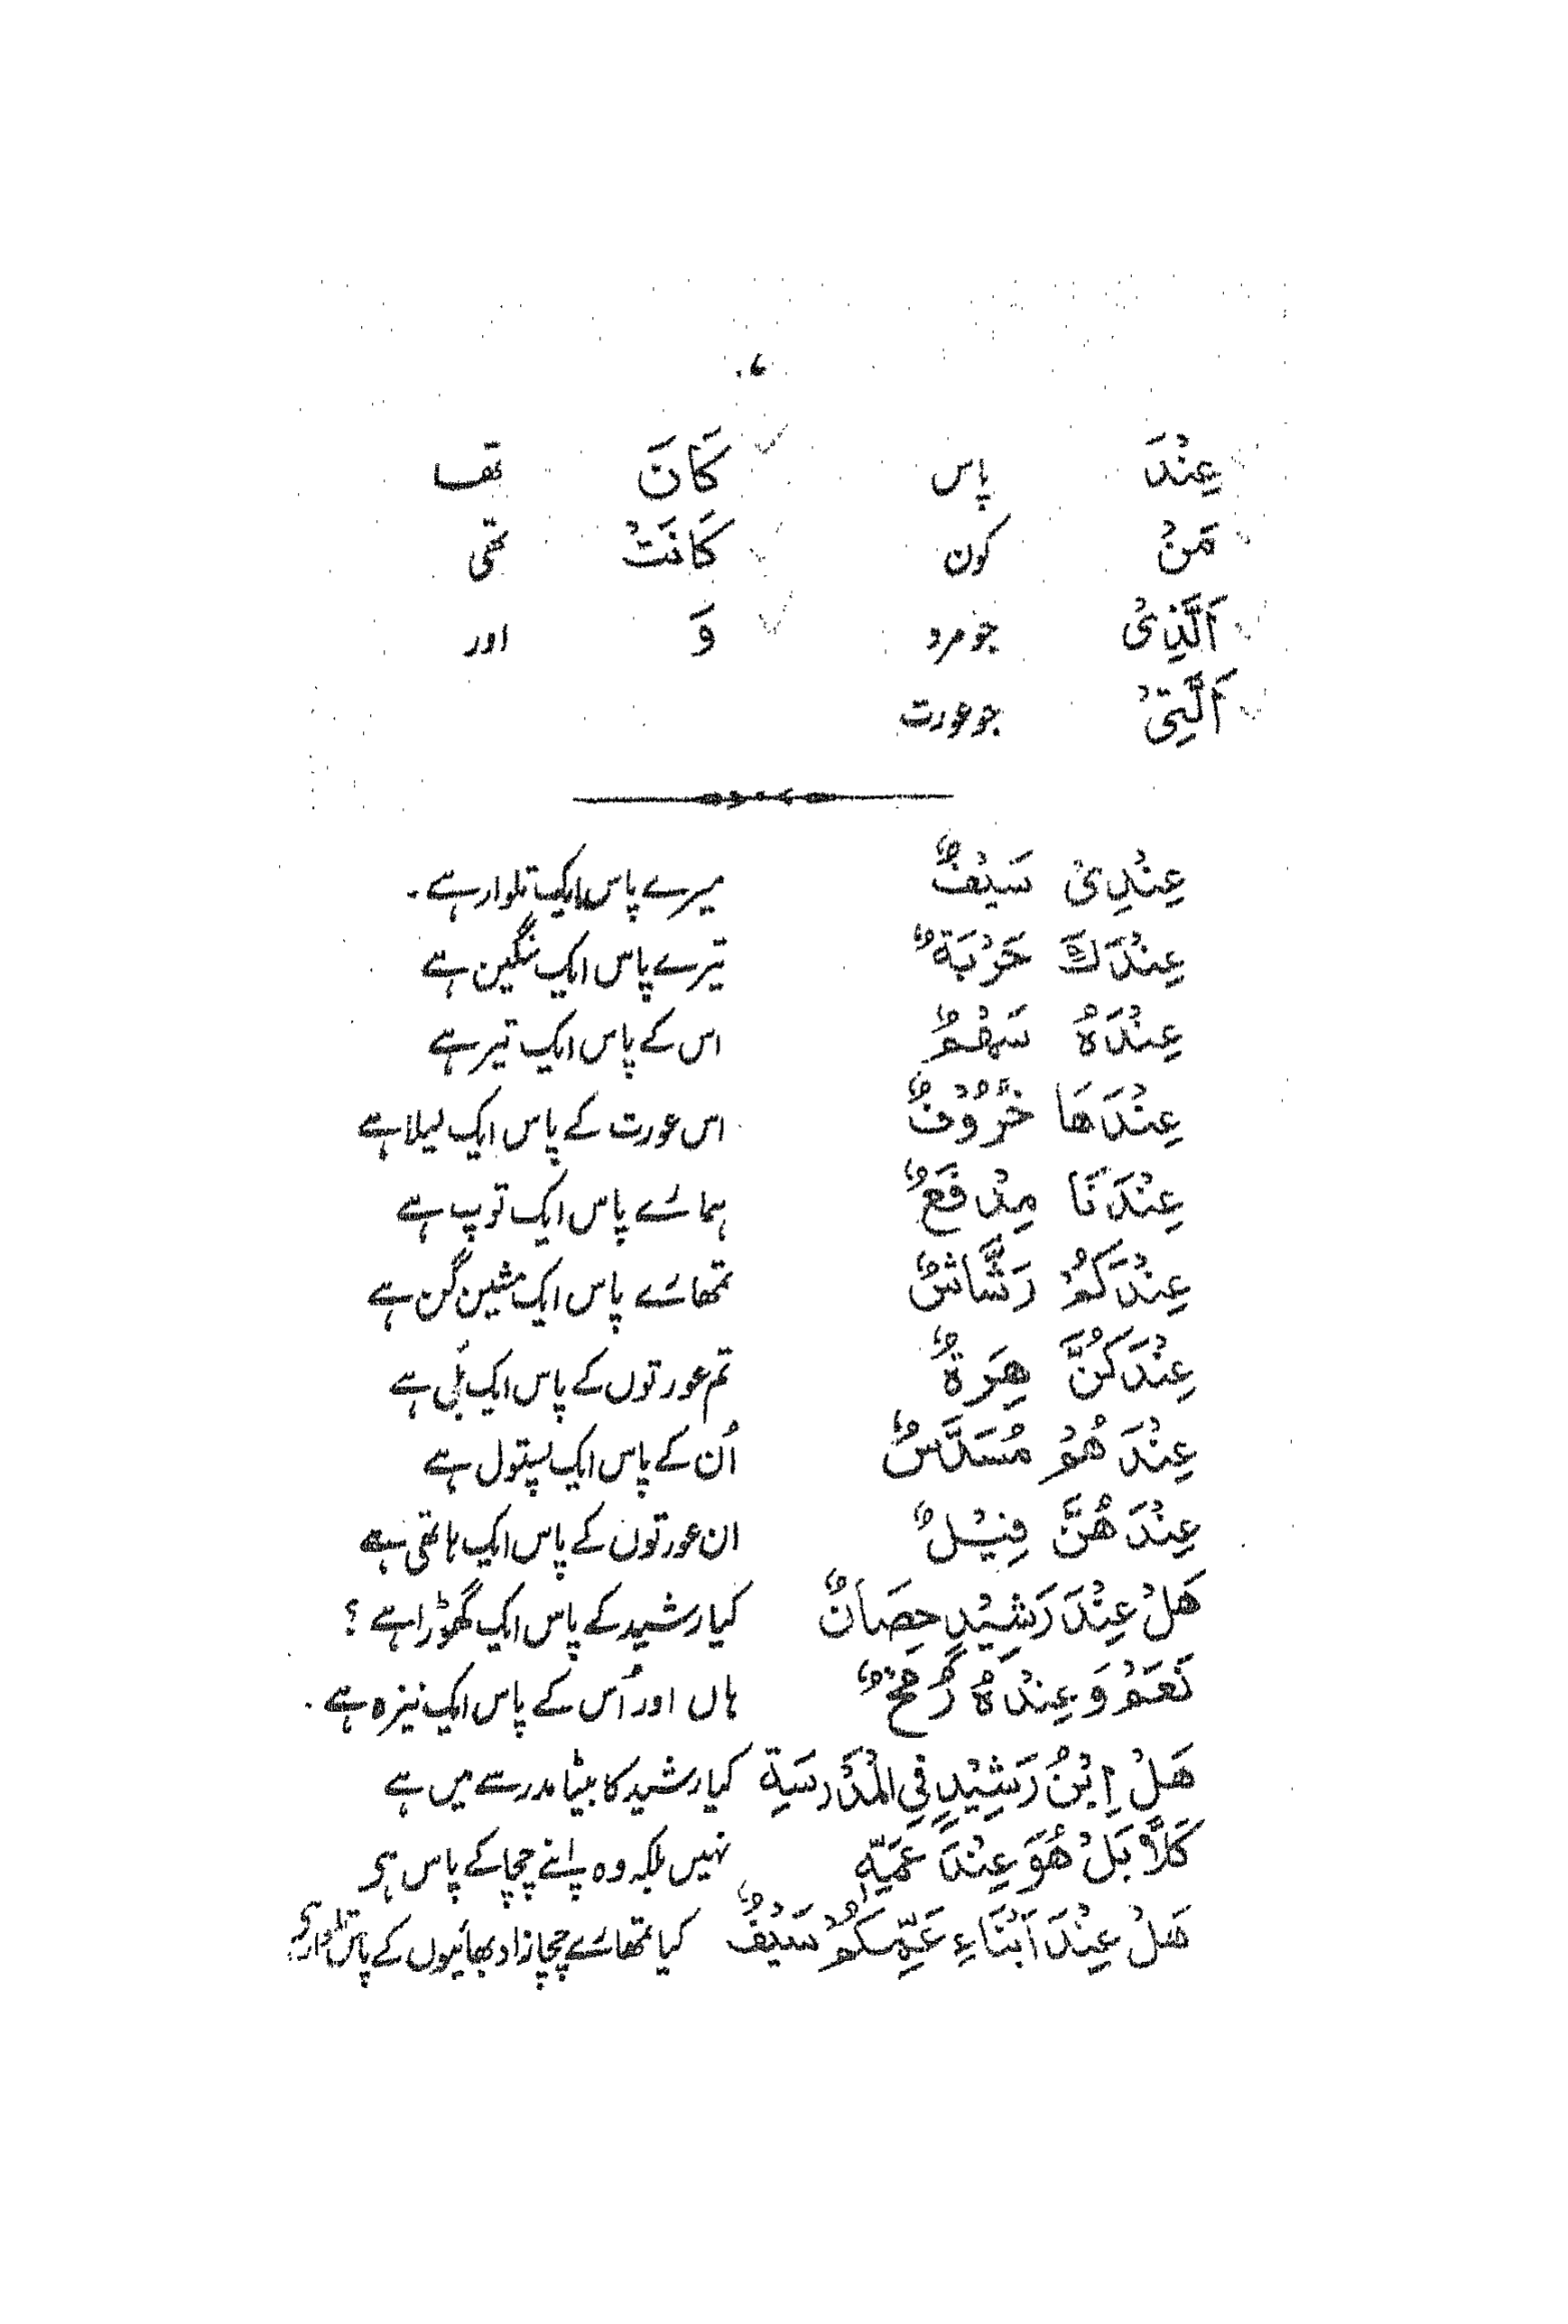 عِنْدَ پاس كَانَ تھا
مَنْ کون كَانَتْ تھی
اَلَّذِىْ جو مرد وَ اور
اَلَّتِىْ جو عورت
عِنْدِىْ سَيْفٌ میرے پاس ایک تلوار ہے۔
عِنْدَكَ حَرْبَةٌ تیرے پاس ایک سنگین ہے
عِنْدَهُ سَهْمٌ اس کے پاس ایک تیر ہے
عِنْدَهَا خَرُوْفٌ اس عورت کے پاس ایک لیلا ہے
عِنْدَنَا مِدْفَعٌ ہمارے پاس ایک توپ ہے
عِنْدَكُمْ رَشَّاشٌ تمھارے پاس ایک مشین گن ہے
عِنْدَكُنَّ هِرَةٌ تم عورتوں کے پاس ایک بلی ہے
عِنْدَهُمْ مُسَدَّسٌ اُن کے پاس ایک پستول ہے
عِنْدَهُنَّ فِيْلٌ ان عورتوں کے پاس ایک ہاتھی ہے
هَلْ عِنْدَ رَشِيْدٍ حِصَانٌ کیا رشید کے پاس ایک گھوڑا ہے ؟
نَعَمْ وَ عِنْدَهُ رُمْحٌ ہاں اور اُس کے پاس ایک نیزہ ہے۔
هَلْ اِبْنُ رَشِيْدٍ فِي الْمَدْرَسَةِ کیا رشید کا بیٹا مدرسے میں ہے
كَلَّا بَلْ هُوَ عِنْدَ عَمِّهٖ نہیں بلکہ وہ اپنے چچا کے پاس ہی
هَلْ عِنْدَ اَبْنَاءِ عَمِّكُمْ سَيْفٌ کیا تمھارے چچا زاد بھائیوں کے پاس تلوار ہی